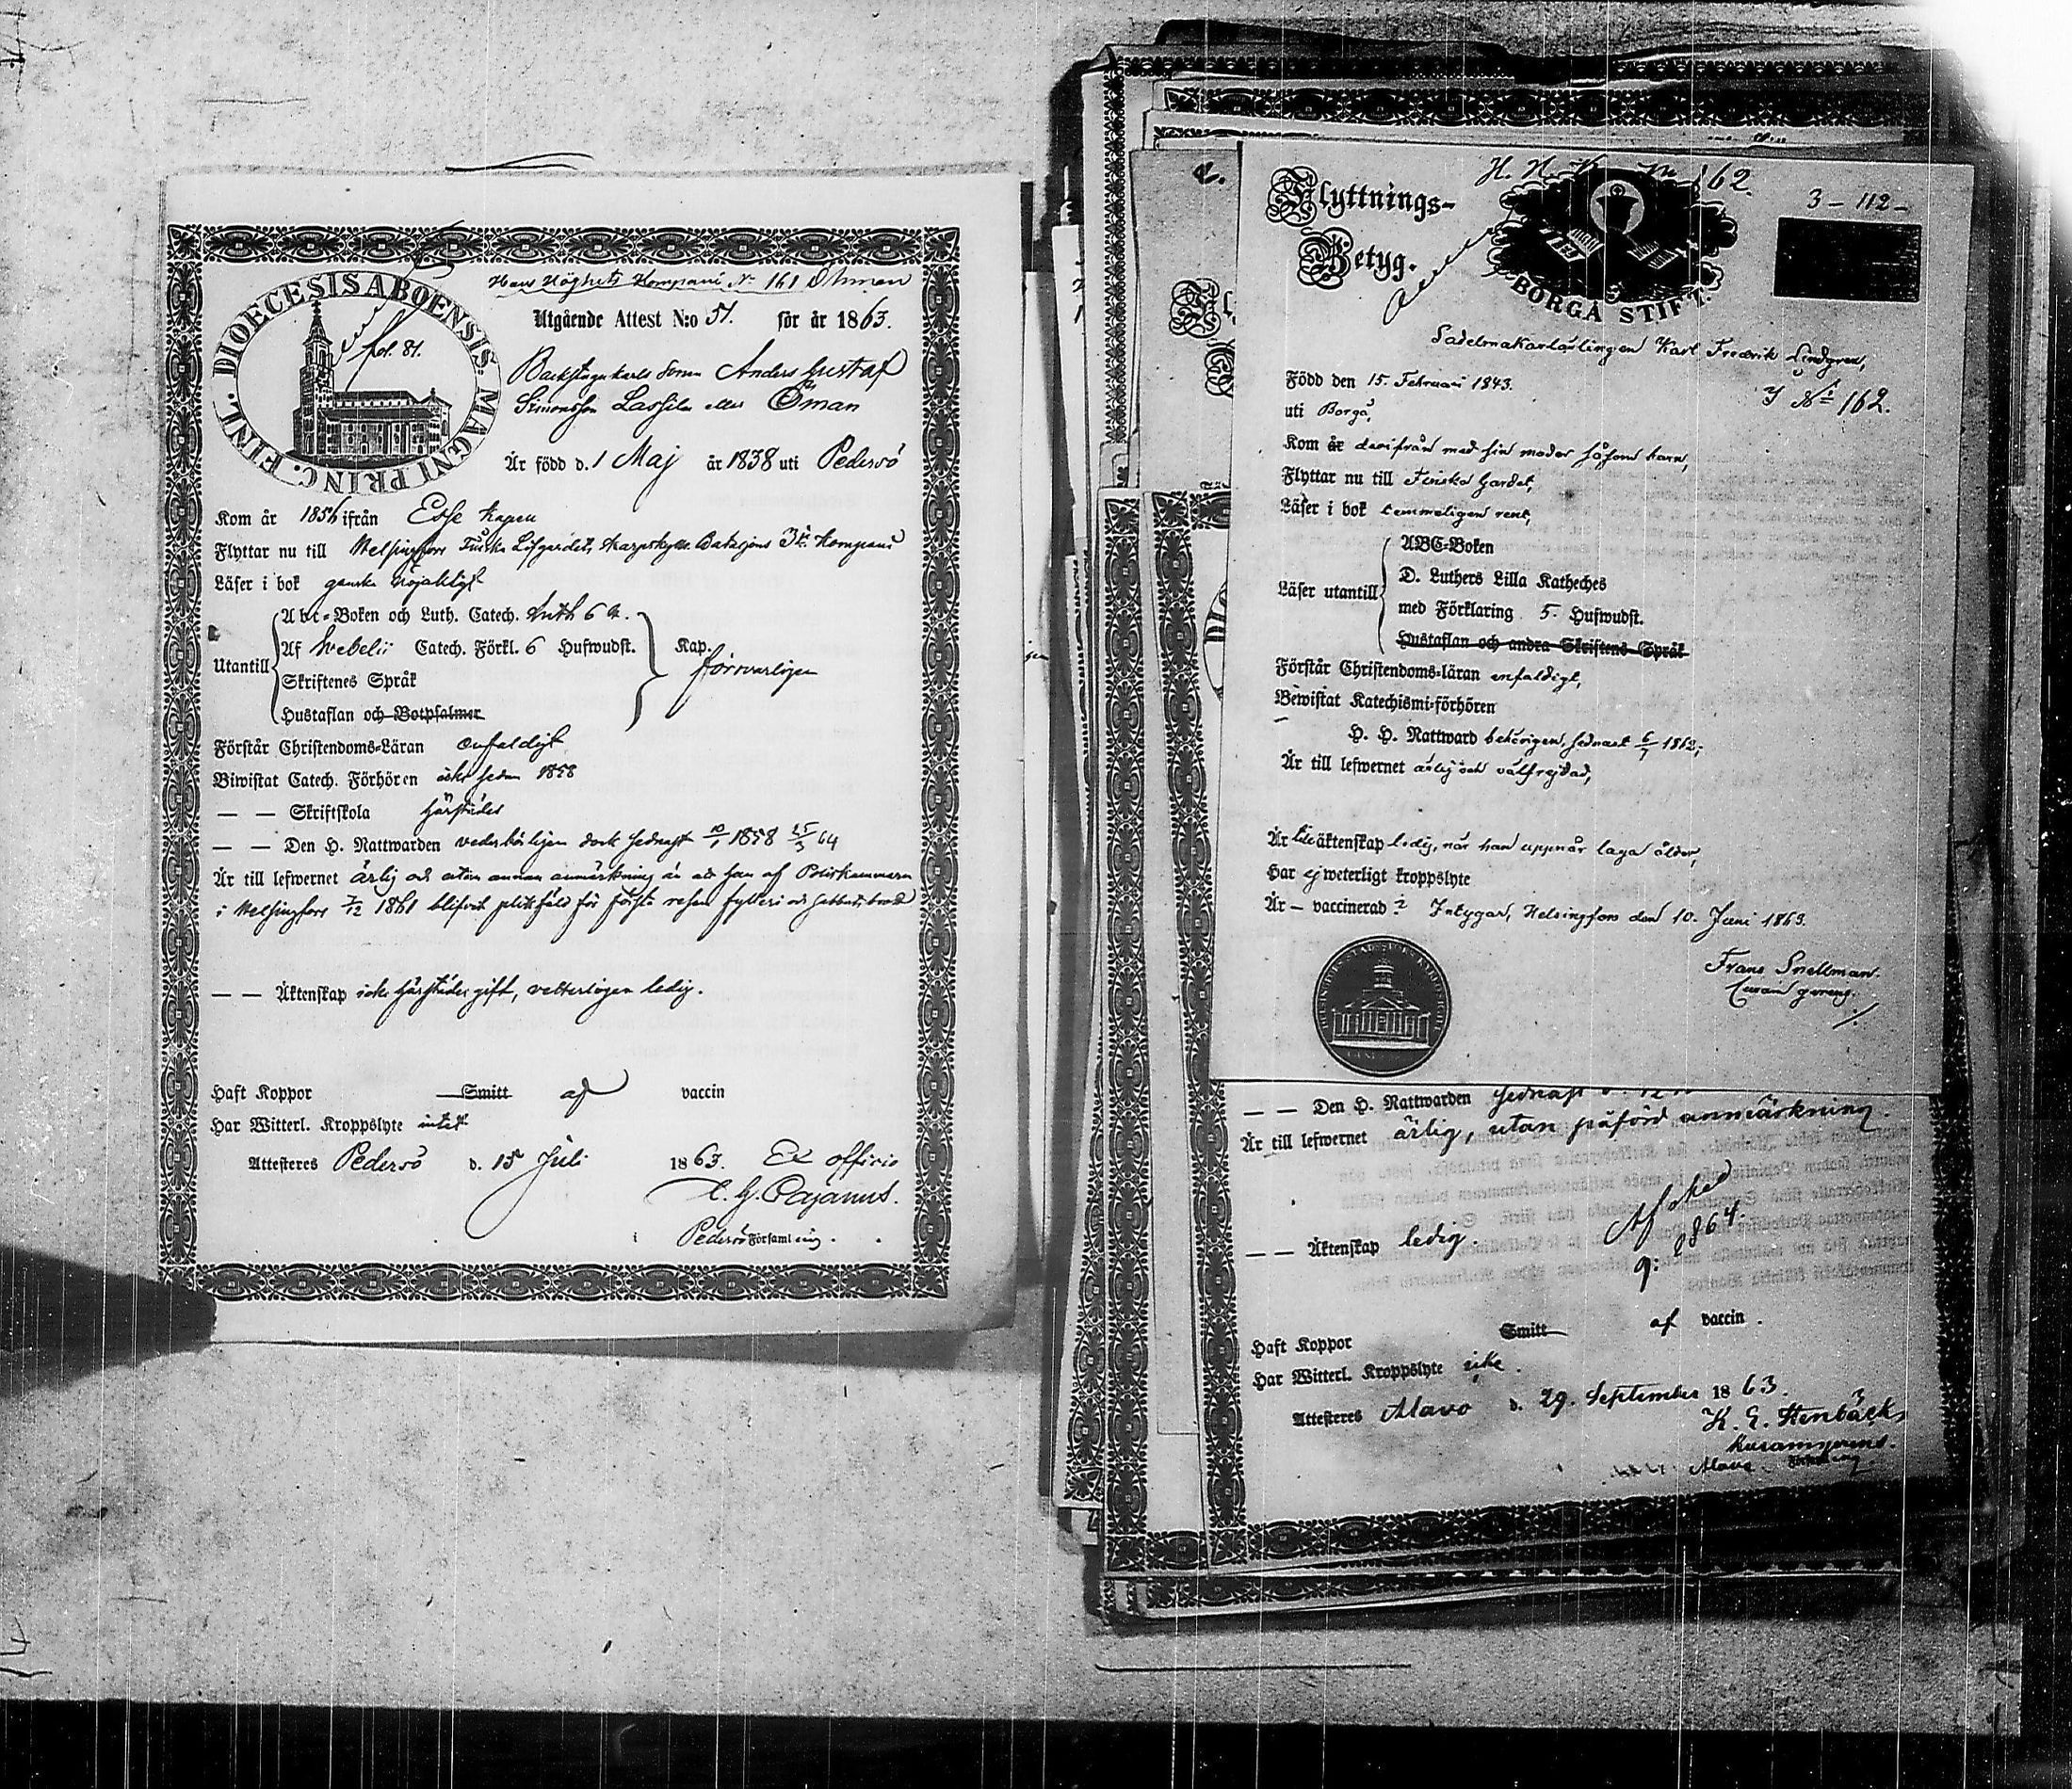 Hans Höghets Kompani N 161 Öhman
DIOECESIS ABOENSIS. MAGNI PRINC. FINL.
fol. 81.
Utgående Attest N:o 51. för år 1863.
Backstugukarls Sonen Anders Gustaf
Simonsson Lassila eller Öman
Är född d. 1 Maj år 1838 uti Pedersö
Kom år 1856 ifrån Esse Kapell
Flyttar nu till Helsingfors Finska Lifgardets Skarpskytte Bataljons 3e Kompani
Läser i bok ganska nöjaktigt
Utantill
Abc-Boken och Luth. Catech. Luth 6 h.
Af Svebelii Catech. Förkl. 6 Hufwudst.
Skriftenes Språk
Hustaflan och Botpsalmer
Kap. försvarligen
Förstår Christendoms-Läran enfaldigt
Biwistat Catech. Förhören icke sedan 1858
— — Skriftskola härstädes
— — Den H. Nattwarden vederbörligen dock sednast 10/1 1858 25/3 64
Är till lefwernet ärlig och utan annan anmärkning än att han af Poliskammaren
i Helsingfors 7/12 1861 blifvit pliktfäld för första resan fylleri och sabbatsbrott
— — Äktenskap icke härstädes gift, vetterligen ledig.
Haft Koppor Smitt af vaccin
Har Witterl. Kroppslyte intet
Attesteres Pedersö d. 15 Juli 1863. Ex officio
Pedersö Församling.
Flyttnings-
Betyg.
162.
3 - 112 -
BORGÅ STIFT.
Sadelmakarlärlingen Karl Fredrik Lindgren,
Född den 15. Februari 1843.
N:o 162.
uti Borgå,
Kom år derifrån med sin moder såsom barn,
Flyttar nu till Finska Gardet,
Läser i bok temmeligen rent,
Läser utantill
ABC-Boken
D. Luthers Lilla Katheches
med Förklaring 5. Hufwudst.
Hustaflan och andra Skriftens Språk
Förstår Christendoms-läran enfaldigt,
Bewistat Katechismi-förhören
H. H. Nattward behörigen, sednast 6/1 1862;
Är till lefwernet ärlig och välfrejdad,
Är till äktenskap ledig, när han uppnår laga ålder,
Har ej weterligt kroppslyte
Är — vaccinerad? Intygar, Helsingfors den 10. Juni 1863.
Frans Snellman.
— — Den H. Nattwarden sednast
Är till lefwernet ärlig, utan påförd anmärkning.
— — Äktenskap ledig.
Afsked
1864.
Haft Koppor Smitt af vaccin.
Har Witterl. Kroppslyte icke.
Attesteres Alavo d. 29. September 1863.
K. E. Stenbäck
Alavo Församling.